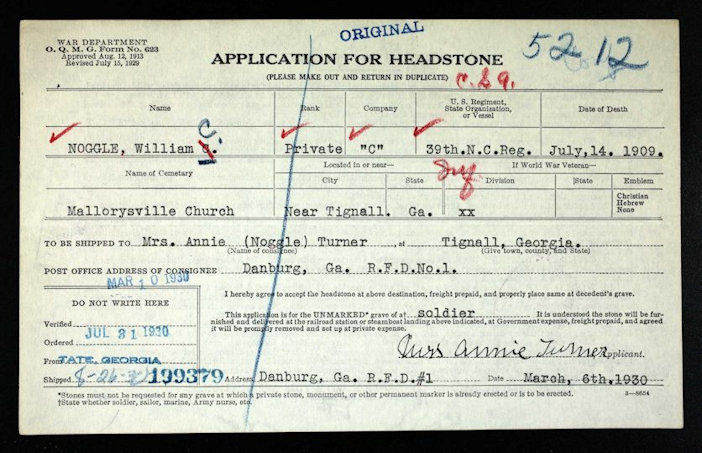 ORIGINAL
WAR DEPARTMENT
O. Q. M. G. Form No. 623
Approved Aug. 12, 1913
Revised July 15, 1929
52 12
APPLICATION FOR HEADSTONE
(PLEASE MAKE OUT AND RETURN IN DUPLICATE)
C.S.A.
Name Rank Company U. S. Regiment, State Organization, or Vessel Date of Death
NOGGLE, William C. Private "C" 39th.N.C.Reg. July,14. 1909.
Name of Cemetary Located in or near— If World War Veteran—
City State Division †State Emblem
Christian
Hebrew
None
Inf
Mallorysville Church Near Tignall. Ga. xx
TO BE SHIPPED TO Mrs. Annie (Noggle) Turner, at Tignall, Georgia.
(Name of consignee) (Give town, county, and State)
POST OFFICE ADDRESS OF CONSIGNEE Danburg, Ga. R.F.D.No.1.
MAR 10 1930
DO NOT WRITE HERE
Verified
JUL 31 1930
Ordered
From TATE, GEORGIA
Shipped 8-26-30 199379
I hereby agree to accept the headstone at above destination, freight prepaid, and properly place same at decedent's grave.
This application is for the UNMARKED* grave of a† soldier. It is understood the stone will be fur-
nished and delivered at the railroad station or steamboat landing above indicated, at Government expense, freight prepaid, and agreed
it will be promptly removed and set up at private expense.
Mrs Annie Turner Applicant.
Address Danburg, Ga. R.F.D.#1 Date March, 6th.1930
*Stones must not be requested for any grave at which a private stone, monument, or other permanent marker is already erected or is to be erected. 3—8654
†State whether soldier, sailor, marine, Army nurse, etc.